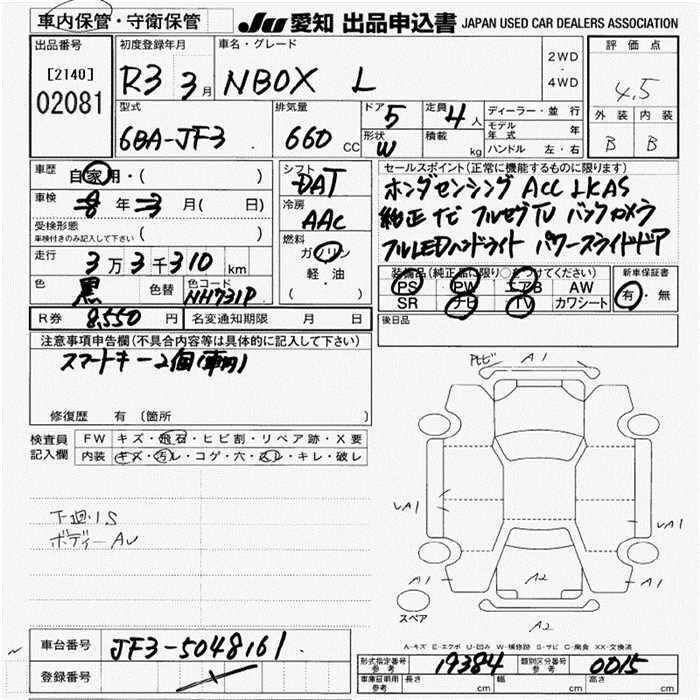 車内保管・守衛保管
JU 愛知 出品申込書 JAPAN USED CAR DEALERS ASSOCIATION
出品番号
[2140]
02081
初度登録年月
R3 3月
車名・グレード
NBOX L
2WD
・
4WD
評価点
4.5
外装 内装
B B
型式
6BA-JF3
排気量
660 CC
ドア 5
定員 4人
形状 W
積載 kg
ディーラー・並行
モデル年式 年
ハンドル 左・右
車歴 自家用・( )
車検 8年3月( 日)
受検形態
車検付きのみ記入して下さい ( )
走行 3万3千310km
色 黒 色替 色コード NH731P
シフト
DAT
冷房
AAC
燃料
ガソリン
軽・油
( )
セールスポイント(正常に機能するものに限ります)
ホンダセンシング ACC LKAS
純正ナビ フルセグTV バックカメラ
フルLEDヘッドライト パワースライドドア
装備品(純正品に限り○をつけてください)
PS PW エアB AW
SR ナビ TV カワシート
新車保証書
有・無
R券 8,550円 名変通知期限 月 日
後日品
注意事項申告欄(不具合内容等は具体的に記入して下さい)
スマートキー2個(車内)
修復歴 有 (箇所
検査員記入欄
FW キズ・飛石・ヒビ割・リペア跡・X要
内装 キズ・汚レ・コゲ・穴・スレ・キレ・破レ
下廻りS
ボディーAU
飛ビ A1
A1
A1
A1
A2
A1
A2
スペア
A-キズ E-エクボ U-凹み W-補修跡 S-サビ C-腐食 XX-交換済
車台番号 JF3-5048161
登録番号
形式指定番号 参考 19384
類別区分番号 参考 0015
車庫証明用 参考 長さ cm 幅 cm 高さ cm